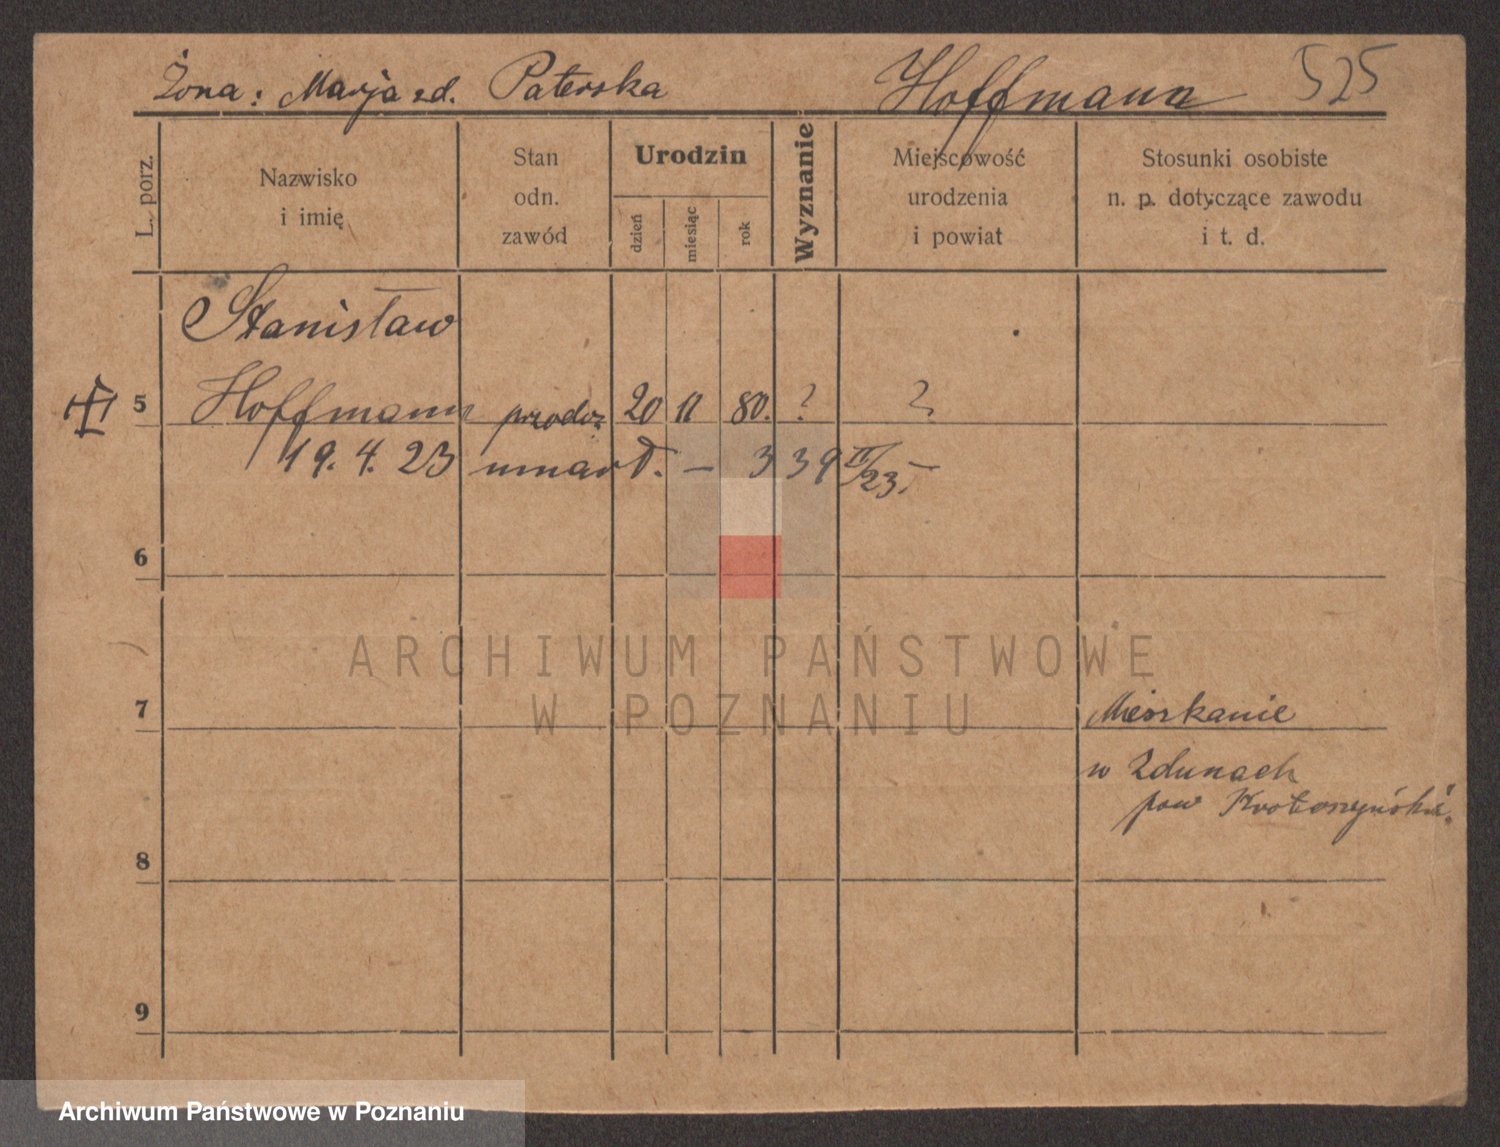 Żona: Marja zd. Paterska Hoffmann 525
L. porz.
Nazwisko
i imię
Stan
odn.
zawód
Urodzin
dzień
miesiąc
rok
Wyznanie
Miejscowość
urodzenia
i powiat
Stosunki osobiste
n. p. dotyczące zawodu
i t. d.
Stanisław
5 Hoffmann 20 11 80. ? ?
19. 4. 23 umarł. — 339 II/23.
6
7 Mieszkanie
w Zdunach
pow Krotoszyński.
8
9
ARCHIWUM PAŃSTWOWE
W POZNANIU
Archiwum Państwowe w Poznaniu